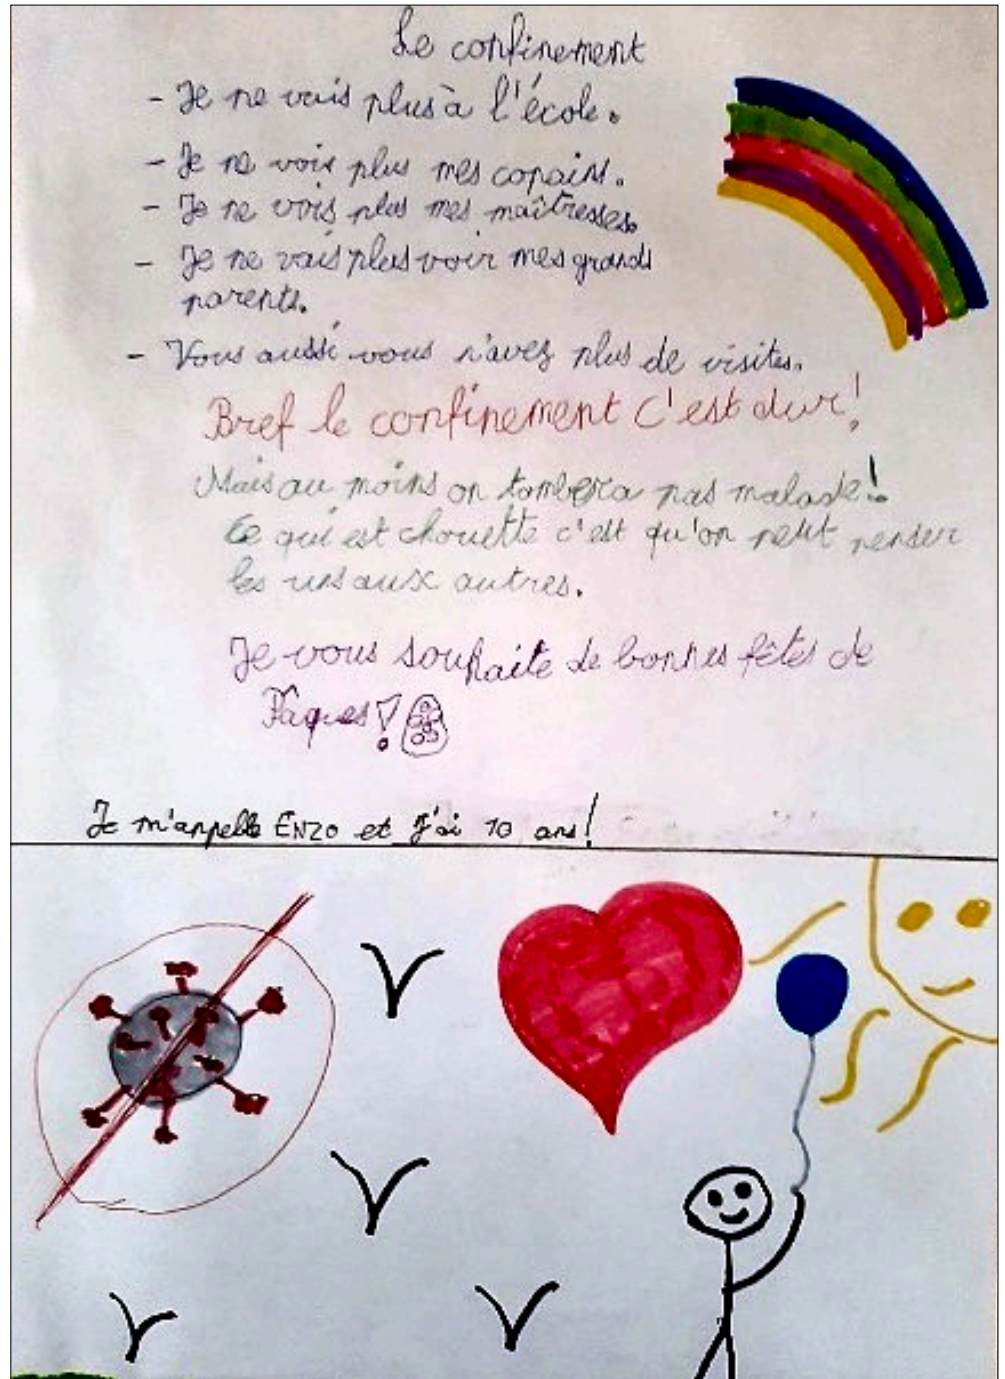 Le confinement
- Je ne vais plus à l'école.
- Je ne vois plus mes copains.
- Je ne vois plus mes maîtresses.
- Je ne vais plus voir mes grands
parents.
- Vous aussi vous n'avez plus de visites.
Bref le confinement c'est dur!
Mais au moins on tombera pas malade!
Ce qui est chouette c'est qu'on peut penser
les uns aux autres.
Je vous souhaite de bonnes fêtes de
Pâques!
Je m'appelle ENZO et j'ai 10 ans!